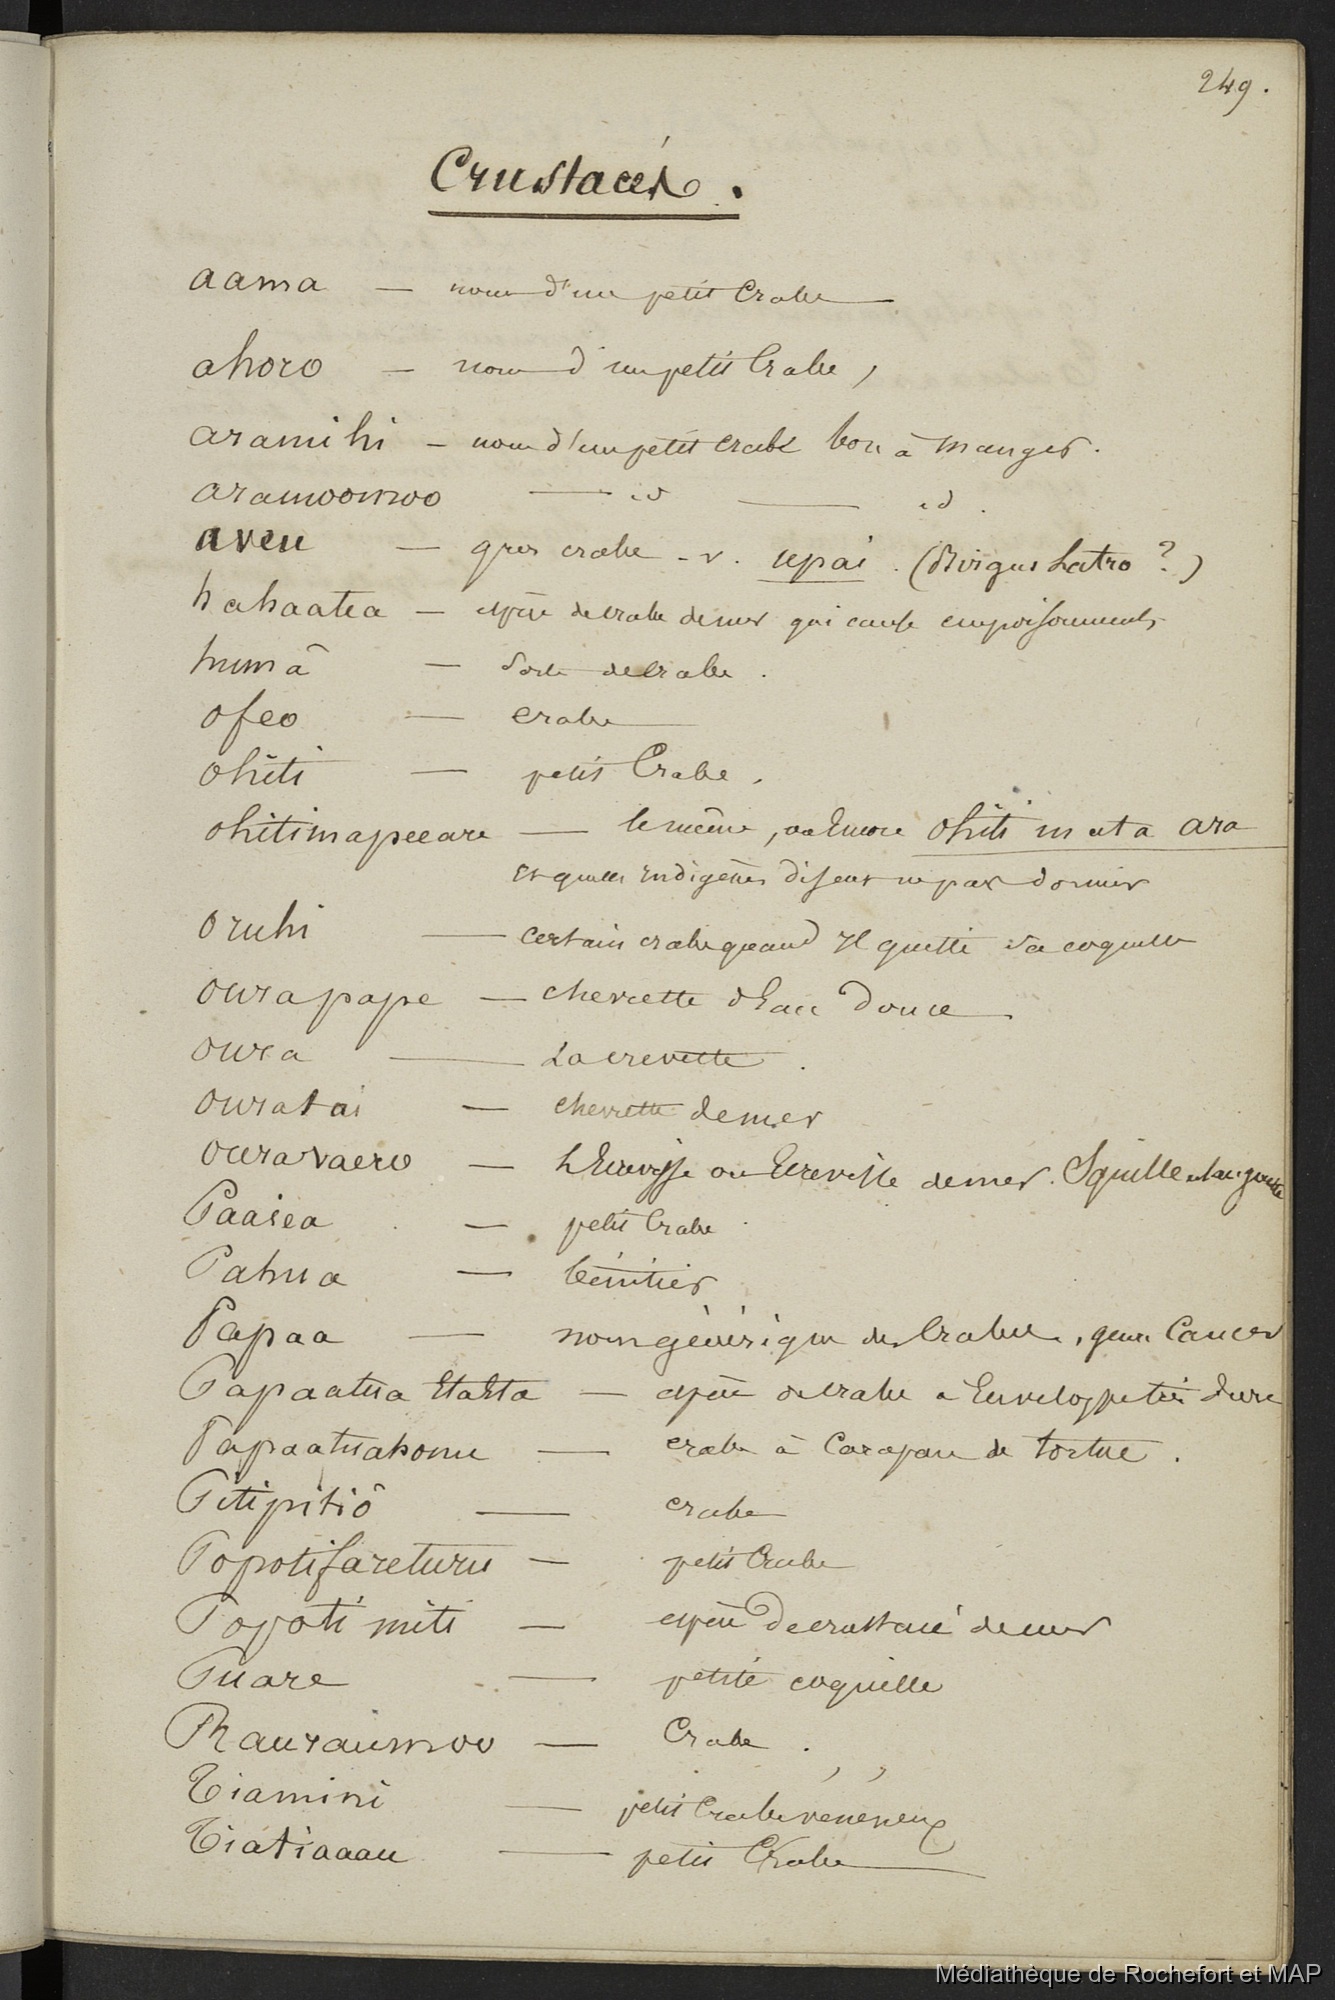 249.
Crustacés.
aama — nom d'un petit Crabe —
ahoro — nom d'un petit Crabe,
aramihi — nom d'un petit crabe bon à manger.
aramoomoo — id — id.
aveu — gros crabe - v. upai. (Birgus Latro ?)
hahaatea — espèce de crabe de mer qui cause empoisonnements
humâ — Sorte de crabe.
ofeo — crabe —
ohiti — petit Crabe.
ohitimapeeare — le même, ou Encore Ohiti mata ara
Et que les indigènes disent ne pas dormir
oruhi — certain crabe quand Il quitte sa coquille
ourapape — chevrette d'Eau Douce —
oura — La crevette.
ouratai — chevrette de mer
ouravaero — L'Ecrevisse ou Ecrevisse de mer. Squille et langouste
Paaiea — petit Crabe
Pahua — bénitier
Papaa — nom générique des Crabes, genre Cancer
Papaatua EtaEta — espèce de crabe à Enveloppe très dure
Papaatuahonu — crabe à Carapace de tortue.
Pitipitiô — crabe
Popotifareturu — petit Crabe
Popoti miti — espèce De crustacé de mer
Puare — petite coquille
Rauraumoo — Crabe.
Tiamini — petit Crabe vénéneux
Tiatiaaau — petit Crabe —
Médiathèque de Rochefort et MAP